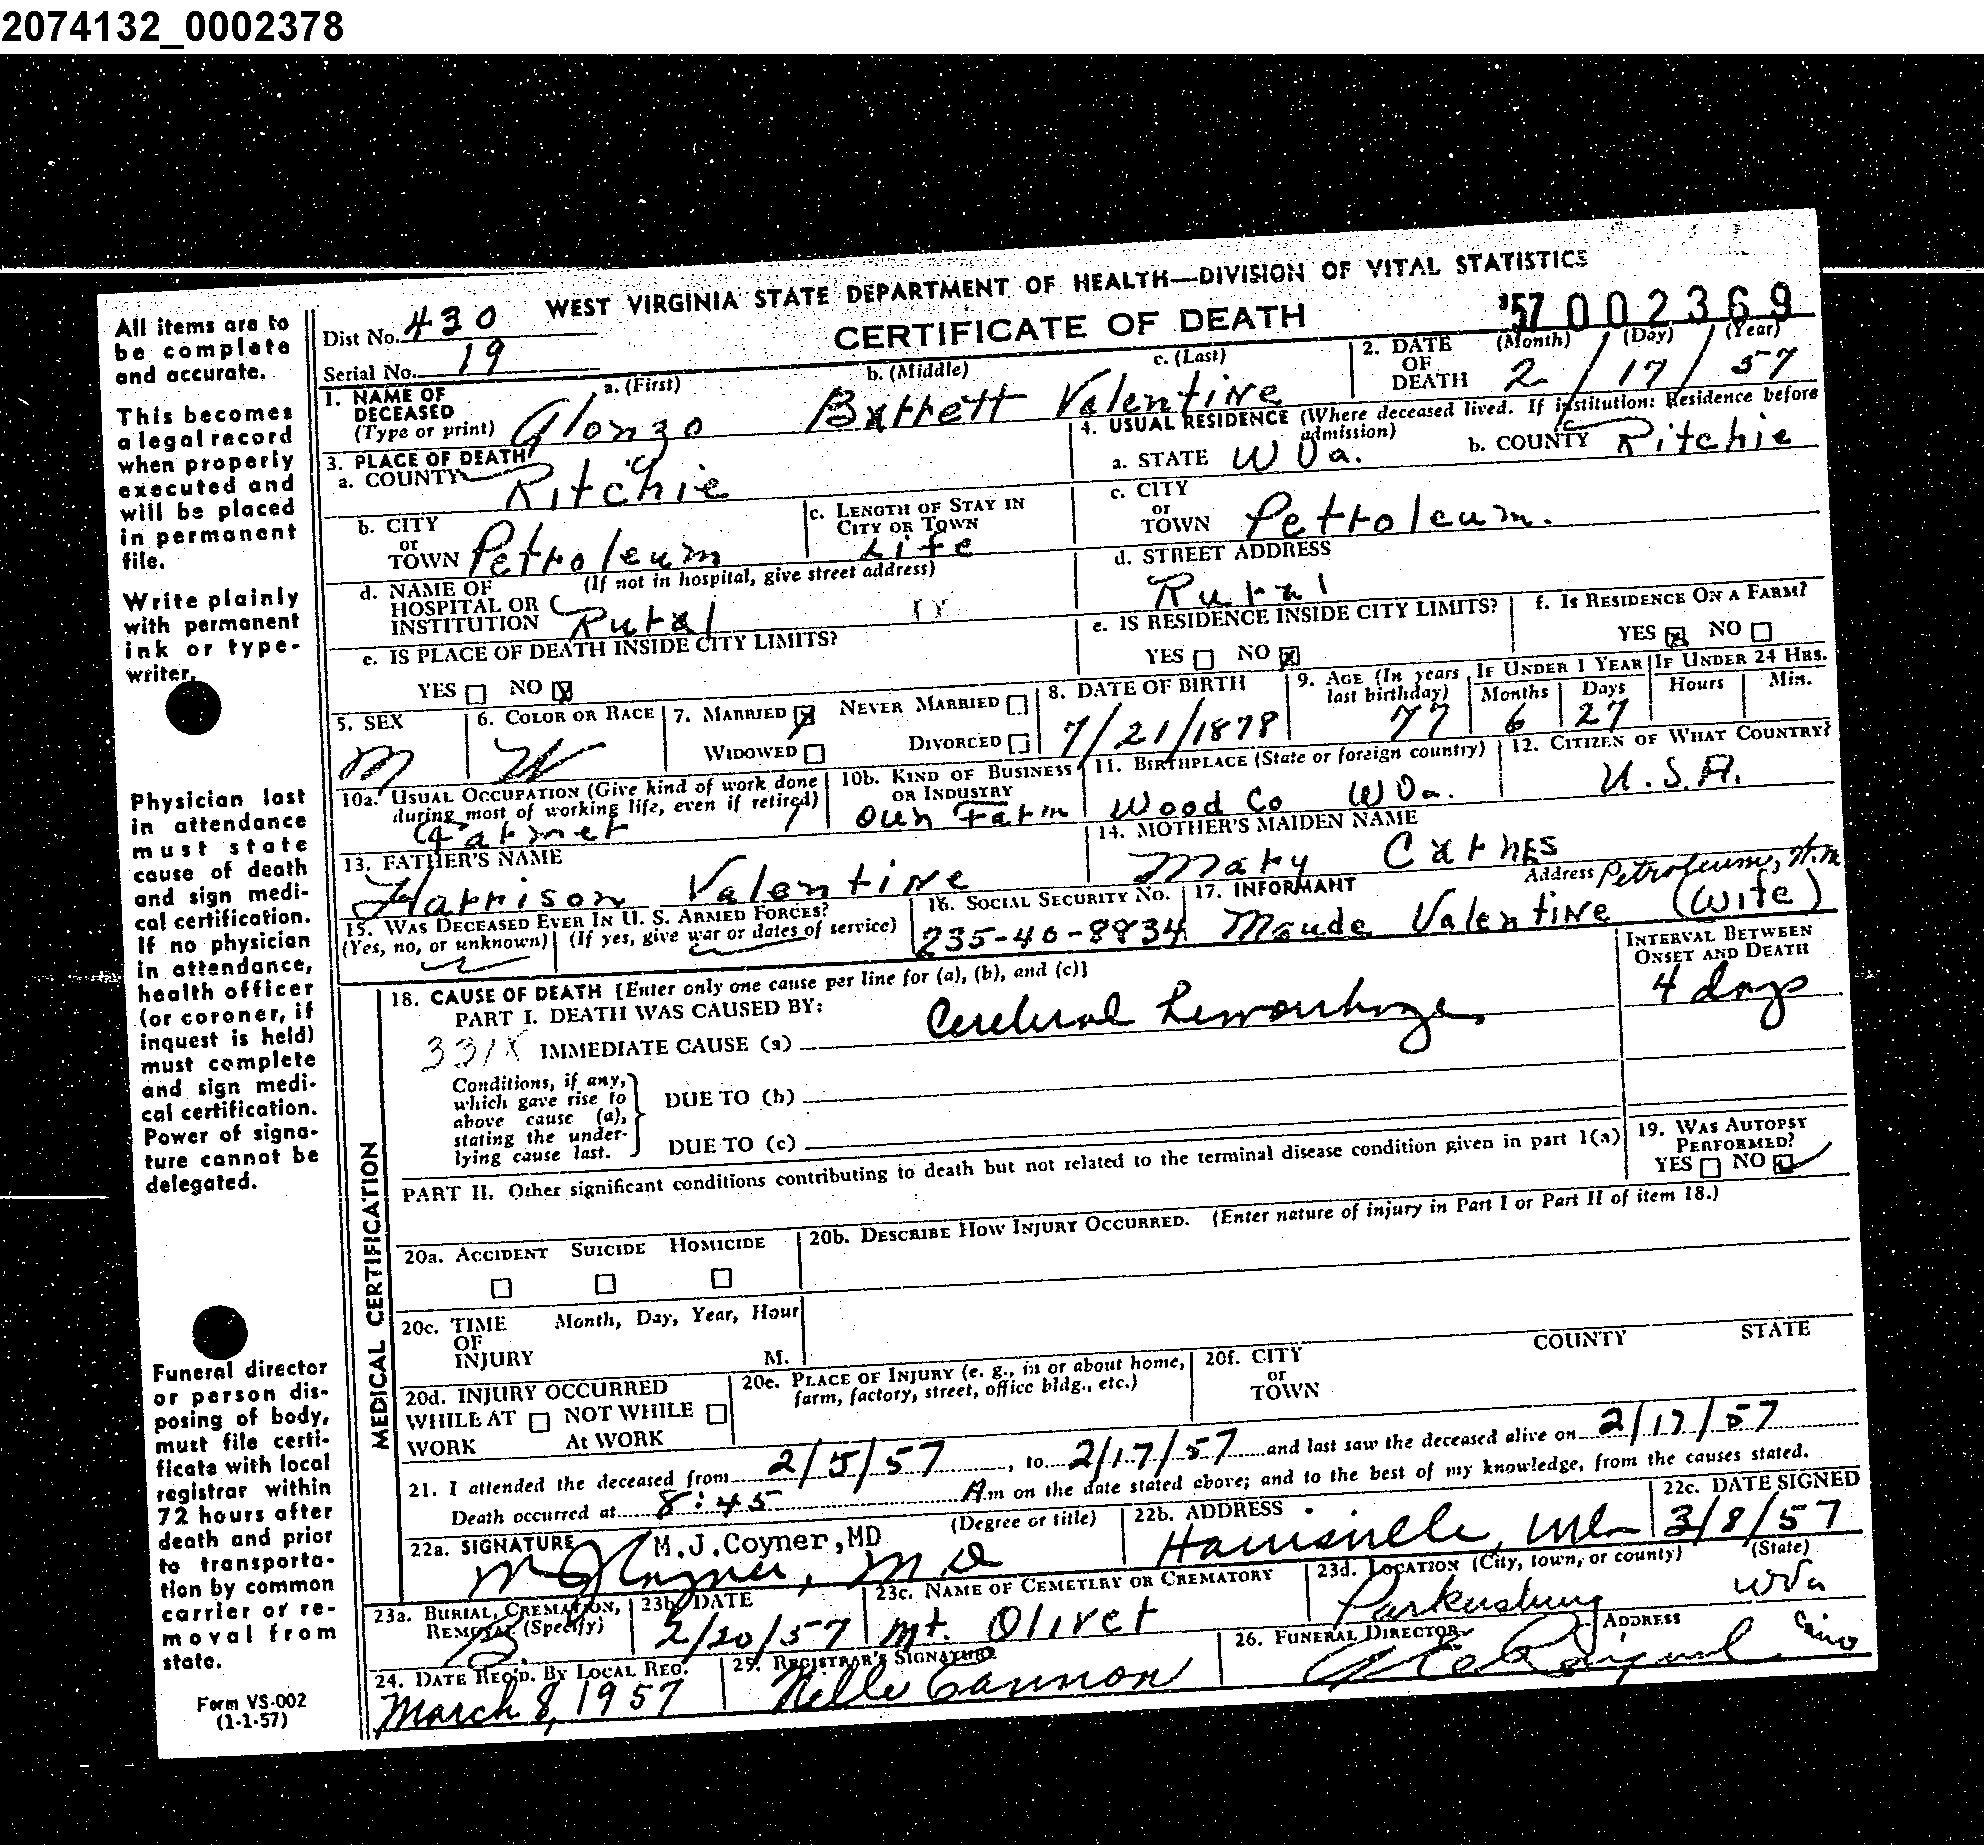 2074132_0002378
WEST VIRGINIA STATE DEPARTMENT OF HEALTH—DIVISION OF VITAL STATISTICS
CERTIFICATE OF DEATH
'57 002369
Dist No. 430
Serial No. 19
1. NAME OF DECEASED (Type or print) a. (First) b. (Middle) c. (Last)
Alonzo Barrett Valentine
2. DATE OF DEATH (Month) (Day) (Year)
2/17/57
3. PLACE OF DEATH
a. COUNTY Ritchie
4. USUAL RESIDENCE (Where deceased lived. If institution: Residence before admission)
a. STATE W Va. b. COUNTY Ritchie
b. CITY or TOWN Petroleum
c. LENGTH OF STAY IN CITY OR TOWN
Life
c. CITY or TOWN Petroleum.
d. NAME OF HOSPITAL OR INSTITUTION (If not in hospital, give street address)
Rural
d. STREET ADDRESS
Rural
e. IS PLACE OF DEATH INSIDE CITY LIMITS?
YES NO X
e. IS RESIDENCE INSIDE CITY LIMITS?
YES NO X
f. IS RESIDENCE ON A FARM?
YES X NO
5. SEX
M
6. COLOR OR RACE
W
7. MARRIED X NEVER MARRIED
WIDOWED DIVORCED
8. DATE OF BIRTH
7/21/1878
9. AGE (In years last birthday)
77
IF UNDER 1 YEAR
Months Days
6 27
IF UNDER 24 HRS.
Hours Min.
10a. USUAL OCCUPATION (Give kind of work done during most of working life, even if retired)
Farmer
10b. KIND OF BUSINESS OR INDUSTRY
Own Farm
11. BIRTHPLACE (State or foreign country)
Wood Co W Va.
12. CITIZEN OF WHAT COUNTRY?
U.S.A.
13. FATHER'S NAME
Harrison Valentine
14. MOTHER'S MAIDEN NAME
Mary Carnes
15. WAS DECEASED EVER IN U. S. ARMED FORCES?
(Yes, no, or unknown) (If yes, give war or dates of service)
16. SOCIAL SECURITY NO.
235-40-8834
17. INFORMANT Address Petroleum,
Maude Valentine (Wife)
MEDICAL CERTIFICATION
18. CAUSE OF DEATH [Enter only one cause per line for (a), (b), and (c)]
PART I. DEATH WAS CAUSED BY:
331X IMMEDIATE CAUSE (a) Cerebral hemorrhage
INTERVAL BETWEEN ONSET AND DEATH
4 days
Conditions, if any, which gave rise to above cause (a), stating the underlying cause last.
DUE TO (b)
DUE TO (c)
PART II. Other significant conditions contributing to death but not related to the terminal disease condition given in part I(a)
19. WAS AUTOPSY PERFORMED?
YES NO
20a. ACCIDENT SUICIDE HOMICIDE
20b. DESCRIBE HOW INJURY OCCURRED. (Enter nature of injury in Part I or Part II of item 18.)
20c. TIME OF INJURY Month, Day, Year, Hour
M.
20d. INJURY OCCURRED
WHILE AT WORK NOT WHILE At WORK
20e. PLACE OF INJURY (e. g., in or about home, farm, factory, street, office bldg., etc.)
20f. CITY or TOWN COUNTY STATE
21. I attended the deceased from 2/5/57, to 2/17/57 and last saw the deceased alive on 2/17/57
Death occurred at 8:45 A m on the date stated above; and to the best of my knowledge, from the causes stated.
22a. SIGNATURE (Degree or title)
M.J.Coyner,MD
M J Coyner, M D
22b. ADDRESS
Harrisville, W Va
22c. DATE SIGNED
3/8/57
23a. BURIAL, CREMATION, REMOVAL (Specify)
B.
23b. DATE
2/20/57
23c. NAME OF CEMETERY OR CREMATORY
Mt. Olivet
23d. LOCATION (City, town, or county) (State)
Parkersburg W Va
24. DATE REC'D. BY LOCAL REG.
March 8, 1957
25. REGISTRAR'S SIGNATURE
Nelle Cannon
26. FUNERAL DIRECTOR ADDRESS
Cairo
All items are to
be complete
and accurate.
This becomes
a legal record
when properly
executed and
will be placed
in permanent
file.
Write plainly
with permanent
ink or type-
writer.
Physician last
in attendance
must state
cause of death
and sign medi-
cal certification.
If no physician
in attendance,
health officer
(or coroner, if
inquest is held)
must complete
and sign medi-
cal certification.
Power of signa-
ture cannot be
delegated.
Funeral director
or person dis-
posing of body,
must file certi-
ficate with local
registrar within
72 hours after
death and prior
to transporta-
tion by common
carrier or re-
moval from
state.
Form VS-002
(1-1-57)